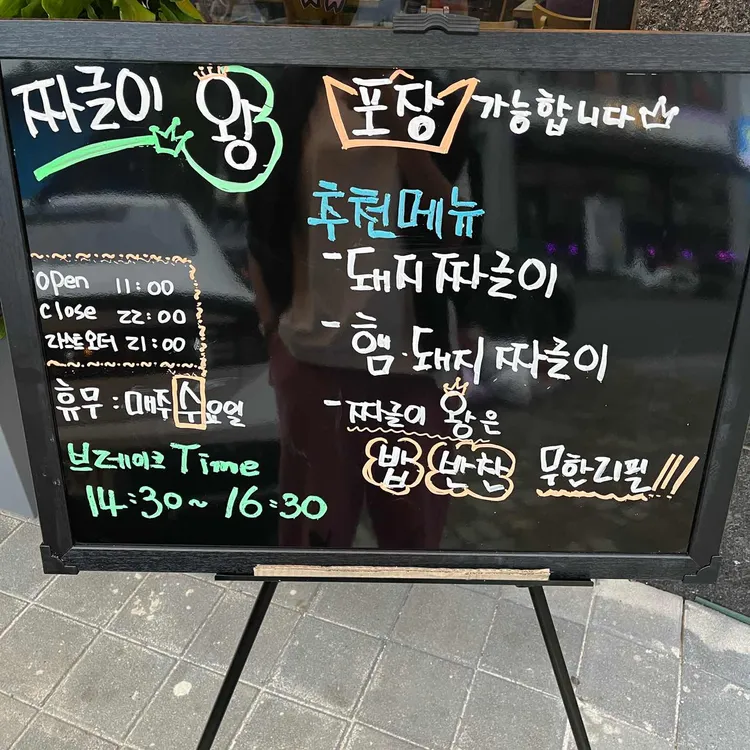 짜글이 왕
포장 가능합니다
추천메뉴
- 돼지 짜글이
- 햄·돼지 짜글이
- 짜글이 왕은
밥 반찬 무한리필!!!
open 11:00
close 22:00
라스트오더 21:00
휴무 : 매주 수요일
브레이크 Time
14:30~ 16:30